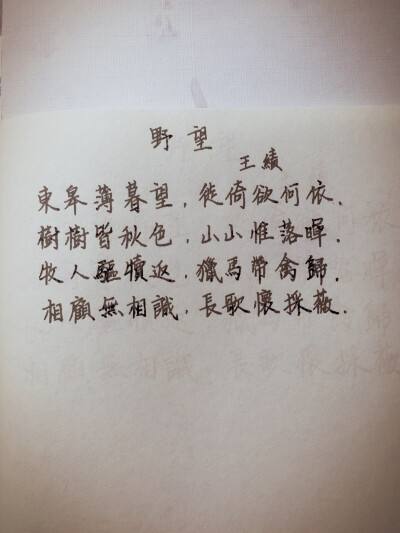 野望
王績
東皋薄暮望,徙倚欲何依.
樹樹皆秋色,山山惟落暉.
牧人驅犢返,獵馬帶禽歸.
相顧無相識,長歌懷採薇.